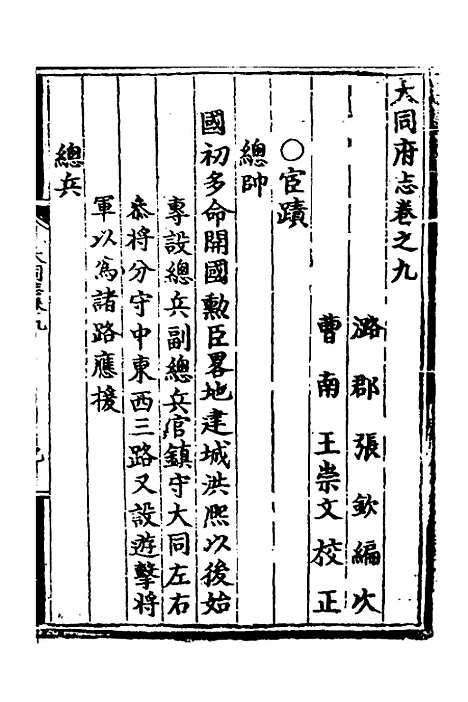 大同府志卷之九
潞郡張欽編次
曹南王崇文校正
○宦蹟
總帥
國初多命開國勳臣畧地建城洪熙以後始
專設總兵副總兵官鎮守大同左右
叅將分守中東西三路又設遊擊將
軍以爲諸路應援
總兵
大同志卷九